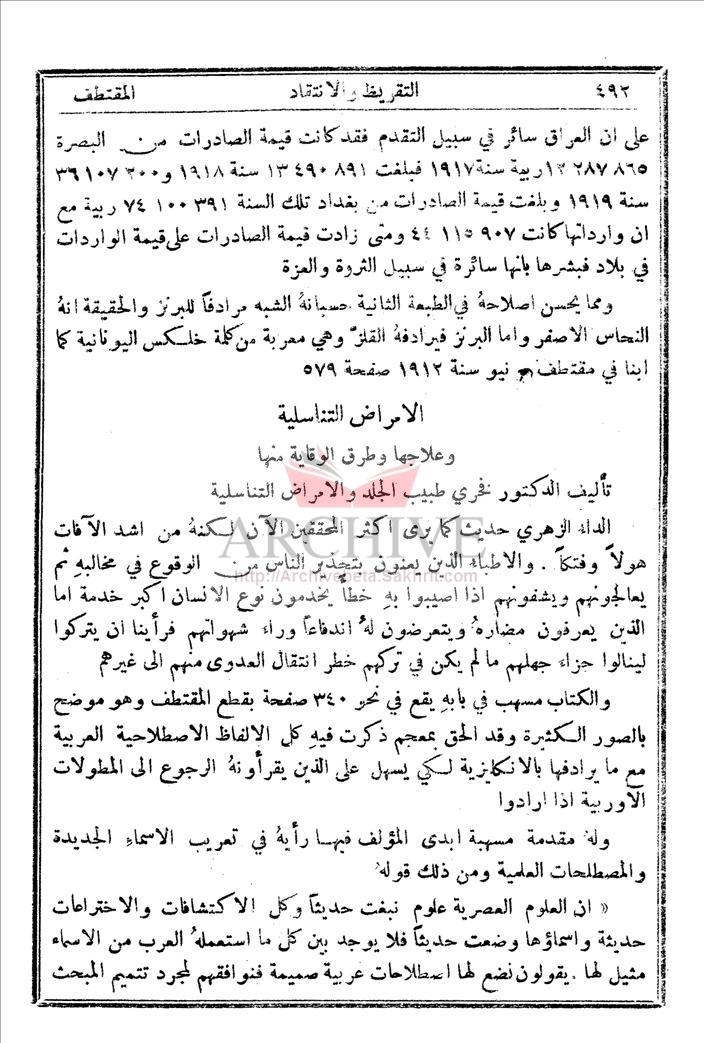 ٤٩٢ التقريظ والانتقاد المقتطف
على ان العراق سائر في سبيل التقدم فقد كانت قيمة الصادرات من البصرة
١٢ ٢٨٧ ٨٦٥ ربية سنة ١٩١٧ فبلغت ٨٩١ ٤٩٠ ١٣ سنة ١٩١٨ و٣٠٠ ١٠٧ ٣٦
سنة ١٩١٩ وبلغت قيمة الصادرات من بغداد تلك السنة ٣٩١ ١٠٠ ٧٤ ربية مع
ان وارداتها كانت ٩٠٧ ١١٥ ٤٤ ومتى زادت قيمة الصادرات على قيمة الواردات
في بلاد فبشرها بانها سائرة في سبيل الثروة والعزة
ومما يحسن اصلاحهُ في الطبعة الثانية حسبانهُ الشبه مرادفاً للبرنز والحقيقة انهُ
النحاس الاصفر واما البرنز فيرادفهُ القلزّ وهي معربة من كلمة خلكس اليونانية كما
ابنا في مقتطف نيو سنة ١٩١٢ صفحة ٥٧٩
الامراض التناسلية
وعلاجها وطرق الوقاية منها
تأليف الدكتور فخري طبيب الجلد والامراض التناسلية
الداء الزهري حديث كما يرى اكثر المحققين الآن لكنهُ من اشد الآفات
هولاً وفتكاً . والاطباء الذين يعنون بتحذير الناس من الوقوع في مخالبهِ ثم
يعالجونهم ويشفونهم اذا اصيبوا بهِ خطأً يخدمون نوع الانسان اكبر خدمة اما
الذين يعرفون مضارهُ ويتعرضون لهُ اندفاعاً وراء شهواتهم فرأينا ان يتركوا
لينالوا جزاء جهلهم ما لم يكن في تركهم خطر انتقال العدوى منهم الى غيرهم
والكتاب مسهب في بابهِ يقع في نحو ٣٤٠ صفحة بقطع المقتطف وهو موضح
بالصور الكثيرة وقد الحق بمعجم ذكرت فيهِ كل الالفاظ الاصطلاحية العربية
مع ما يرادفها بالانكليزية لكي يسهل على الذين يقرأونهُ الرجوع الى المطولات
الاوربية اذا ارادوا
ولهُ مقدمة مسهبة ابدى المؤلف فيها رأيهُ في تعريب الاسماءِ الجديدة
والمصطلحات العلمية ومن ذلك قولهُ
« ان العلوم العصرية علوم نبغت حديثاً وكل الاكتشافات والاختراعات
حديثة واسماؤها وضعت حديثاً فلا يوجد بين كل ما استعملهُ العرب من الاسماء
مثيل لها . يقولون نضع لها اصطلاحات عربية صميمة فنوافقهم لمجرد تتميم المبحث
ARCHIVE
http://Archivebeta.Sakhrit.com